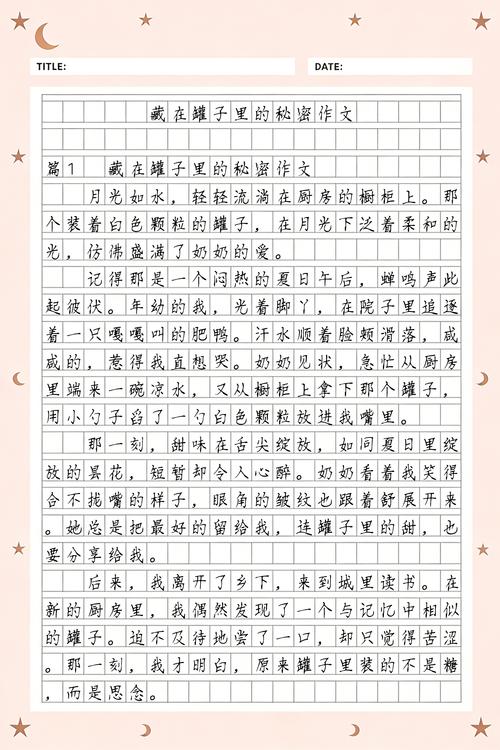 TITLE:
DATE:
藏在罐子里的秘密作文
篇1 藏在罐子里的秘密作文
月光如水，轻轻流淌在厨房的橱柜上。那
个装着白色颗粒的罐子，在月光下泛着柔和的
光，仿佛盛满了奶奶的爱。
记得那是一个闷热的夏日午后，蝉鸣声此
起彼伏。年幼的我，光着脚丫，在院子里追逐
着一只嘎嘎叫的肥鸭。汗水顺着脸颊滑落，咸
咸的，惹得我直想哭。奶奶见状，急忙从厨房
里端来一碗凉水，又从橱柜上拿下那个罐子，
用小勺子舀了一勺白色颗粒放进我嘴里。
那一刻，甜味在舌尖绽放，如同夏日里绽
放的昙花，短暂却令人心醉。奶奶看着我笑得
合不拢嘴的样子，眼角的皱纹也跟着舒展开来
。她总是把最好的留给我，连罐子里的甜，也
要分享给我。
后来，我离开了乡下，来到城里读书。在
新的厨房里，我偶然发现了一个与记忆中相似
的罐子。迫不及待地尝了一口，却只觉得苦涩
。那一刻，我才明白，原来罐子里装的不是糖
，而是思念。